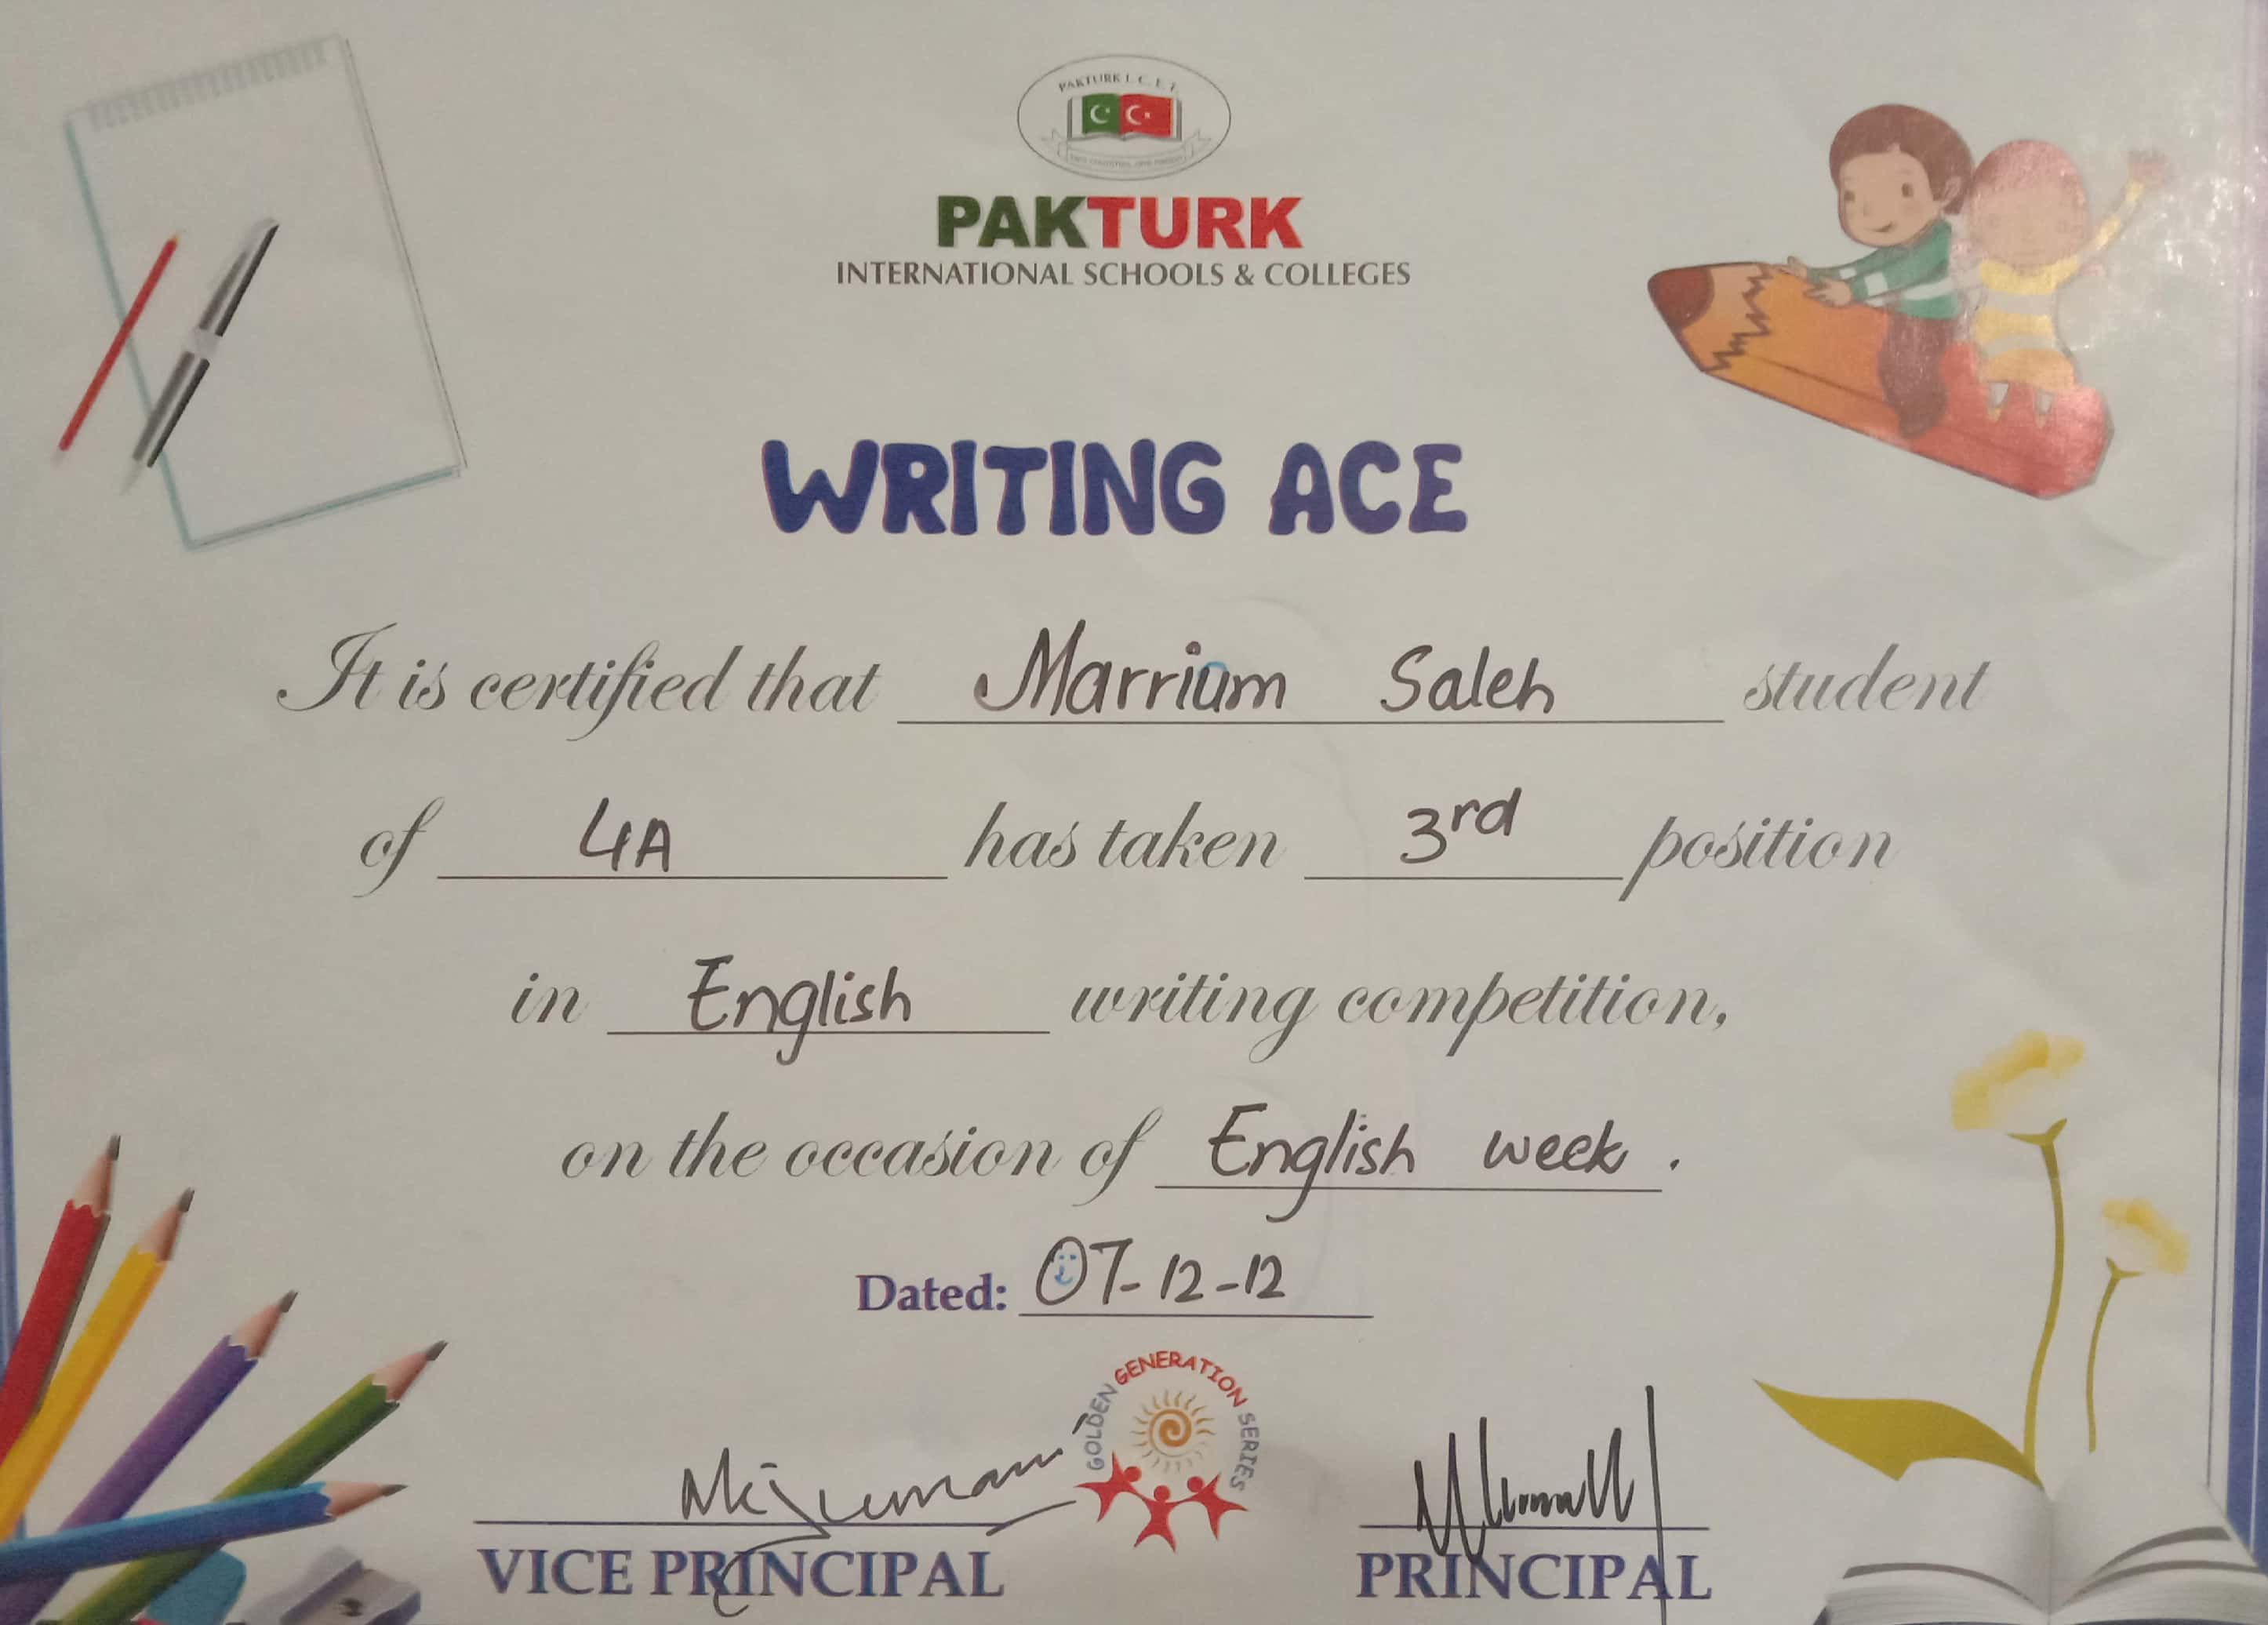 PAKTURK I. C. E. T.
PAKTURK
INTERNATIONAL SCHOOLS & COLLEGES
WRITING ACE
It is certified that Marrium Saleh student
of 4A has taken 3rd position
in English writing competition,
on the occasion of English week.
Dated: 07-12-12
GOLDEN GENERATION SERIES
VICE PRINCIPAL
PRINCIPAL